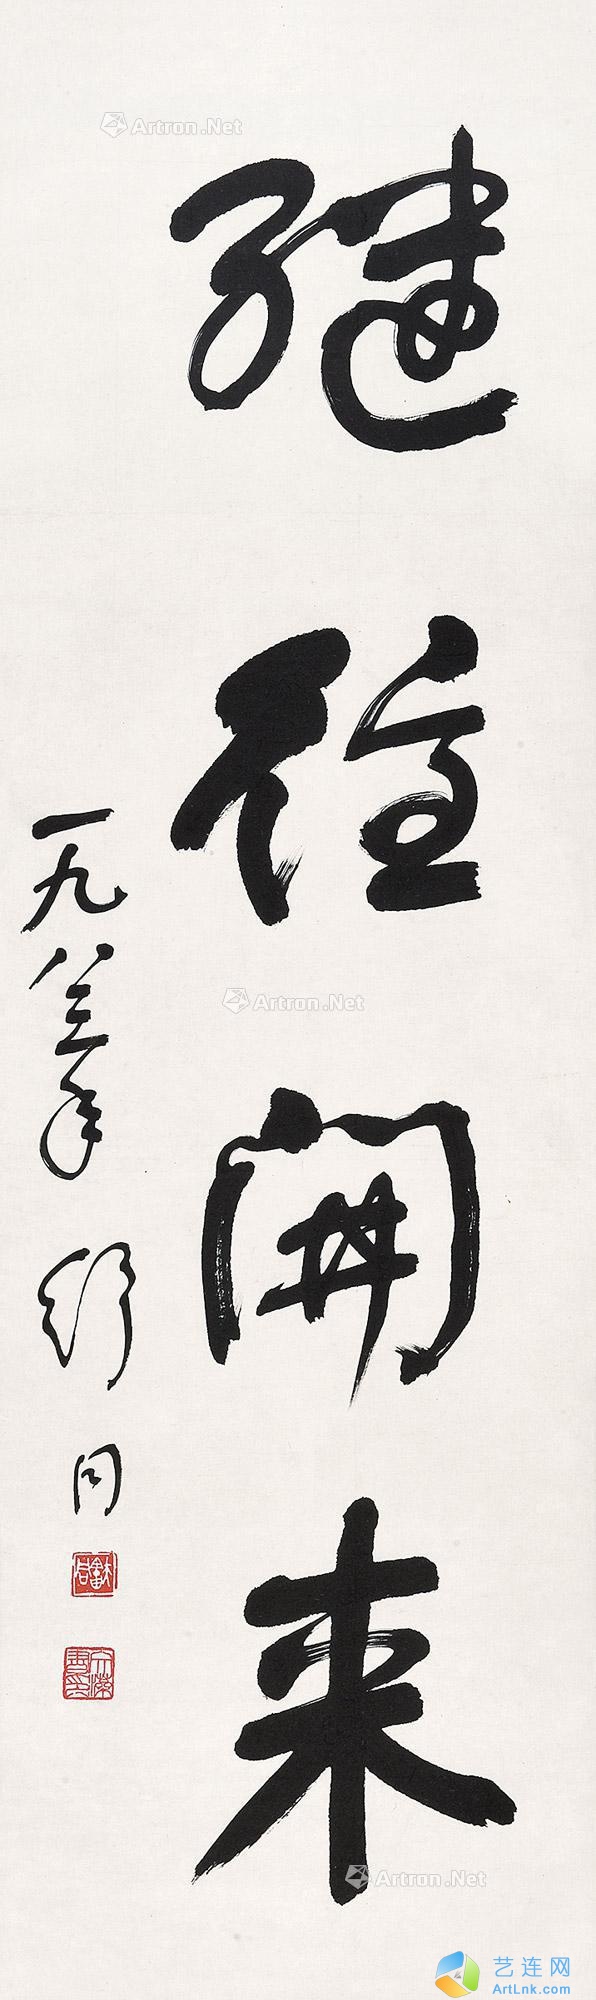 继往開来
一九八三年 舒同
Artron.Net
Artron.Net
Artron.Net
艺连网
ArtLnk.com